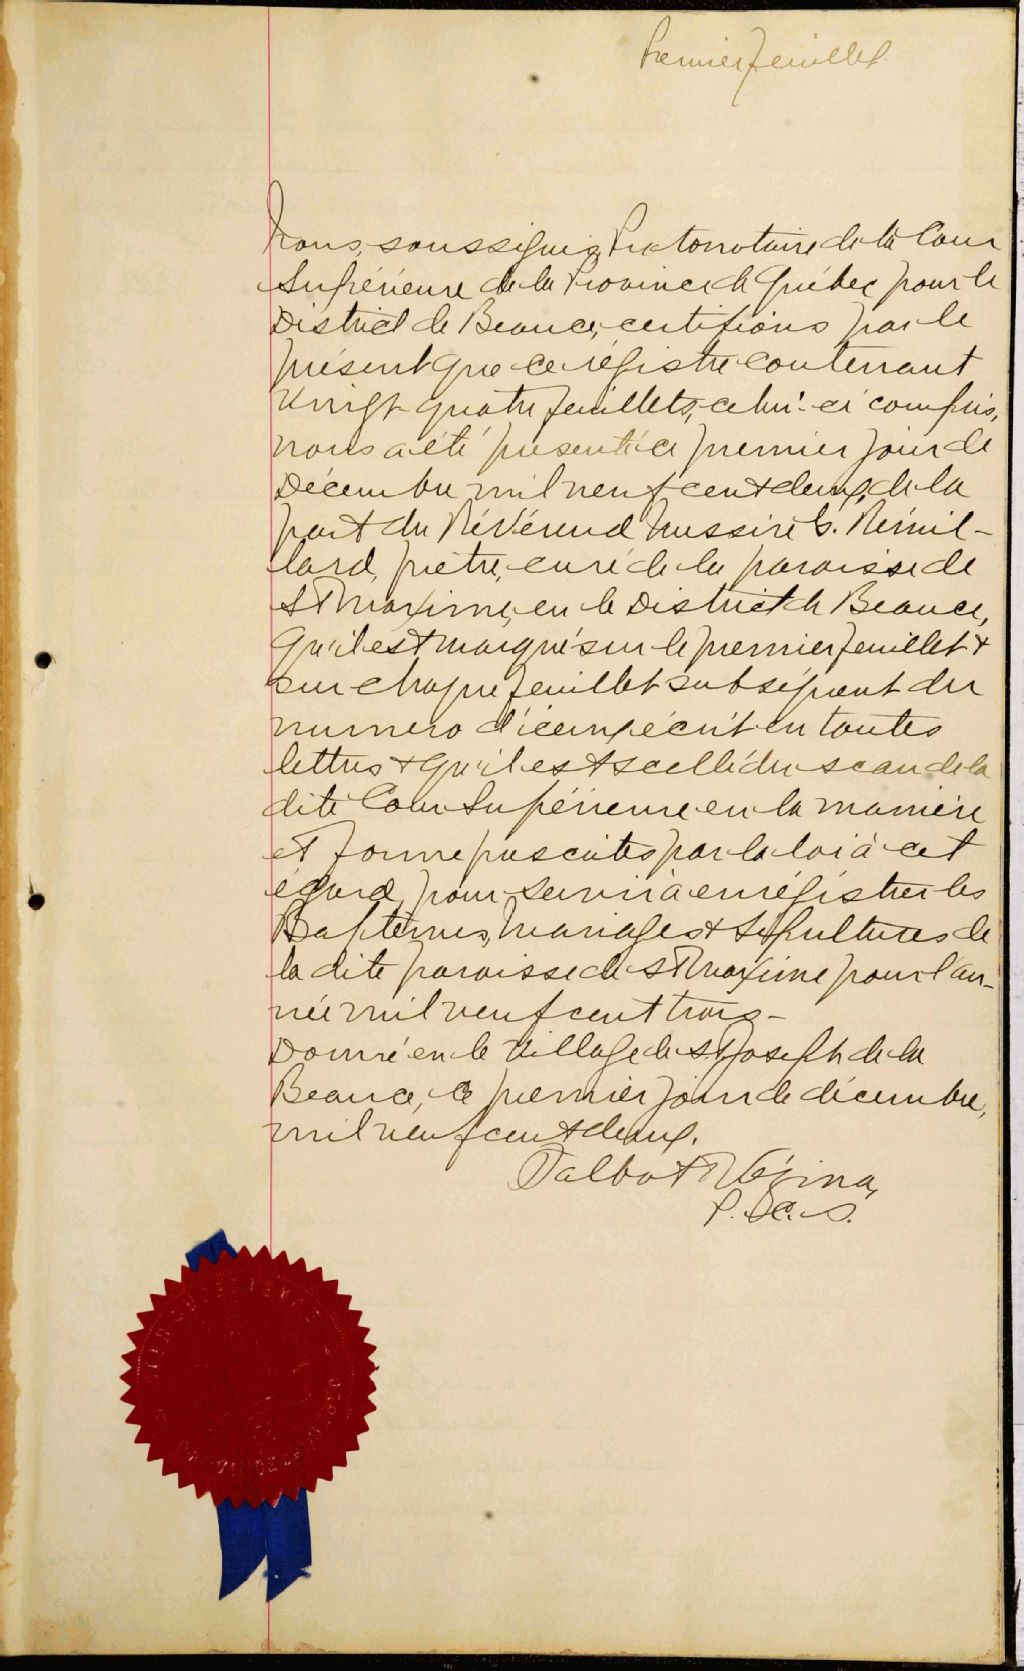 Premier feuillet.
Nous, soussignés, Protonotaire de la Cour
Supérieure de la Province de Québec pour le
District de Beauce, certifions par le
présent que ce régistre contenant
Vingt quatre feuillets, celui-ci compris,
nous a été présenté ce premier jour de
Décembre mil neuf cent deux, de la
part du Révérend Messire G. Rémil-
lard, prêtre, curé de la paroisse de
St Maxime, en le District de Beauce,
Qu'il est marqué sur le premier feuillet &
sur chaque feuillet subséquent du
numero d'iceux écrit en toutes
lettres & qu'il est scellé du sceau de la
dite Cour Supérieure en la manière
et forme prescrites par la loi à cet
égard, pour servir à enrégistrer les
Baptêmes, Mariages & Sépultures de
la dite paroisse de St Maxime pour l'an-
née mil neuf cent trois -
Donné en le Village de St Joseph de la
Beauce, ce premier jour de décembre,
mil neuf cent deux.
Talbot & Vézina,
P. D. C. S.